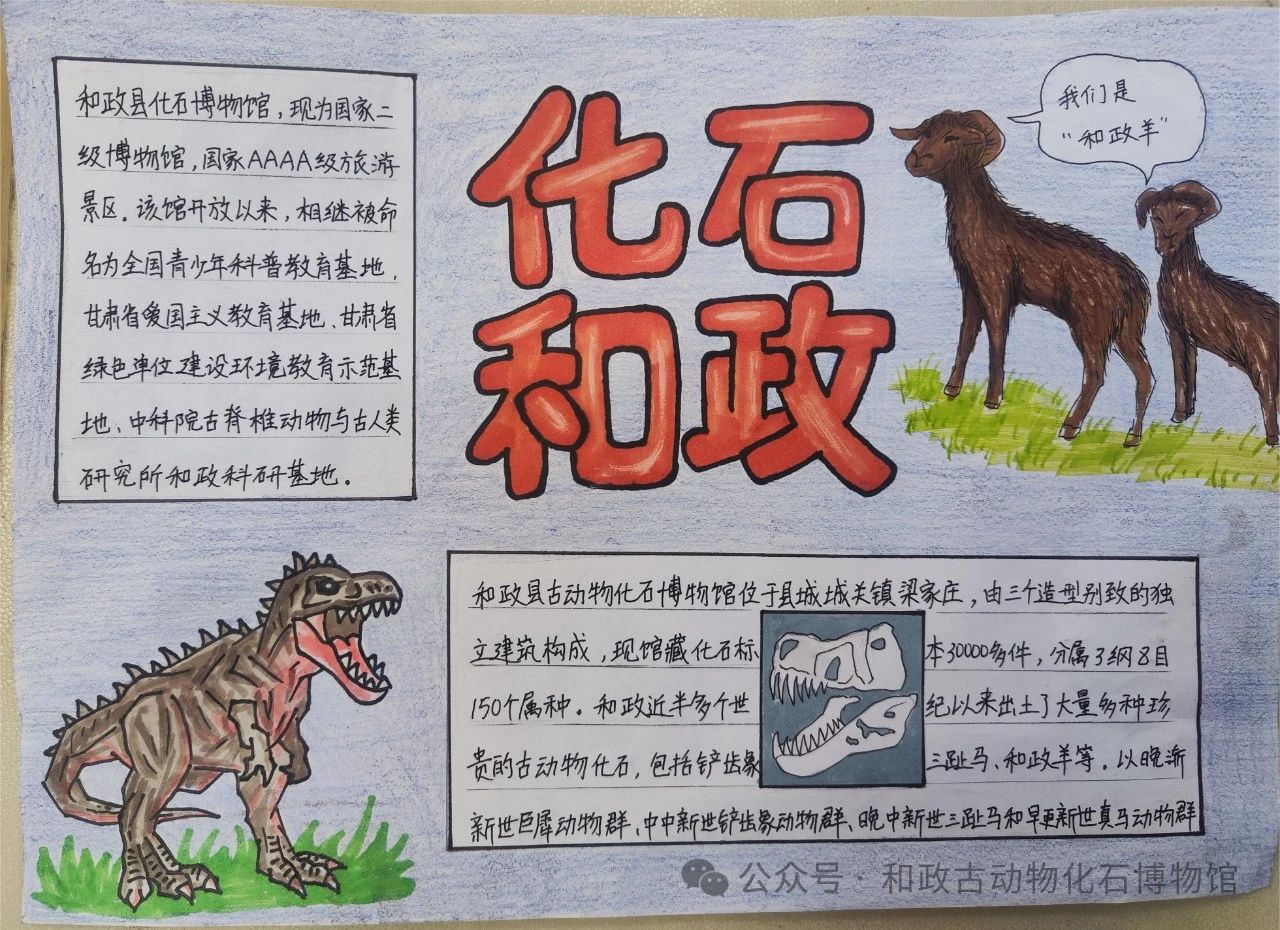 和政县化石博物馆，现为国家二
级博物馆，国家AAAA级旅游
景区。该馆开放以来，相继被命
名为全国青少年科普教育基地，
甘肃省爱国主义教育基地、甘肃省
绿色单位建设环境教育示范基
地、中科院古脊椎动物与古人类
研究所和政科研基地。
化石
和政
我们是
“和政羊”
和政县古动物化石博物馆位于县城城关镇梁家庄，由三个造型别致的独
立建筑构成，现馆藏化石标本30000多件，分属3纲8目
150个属种。和政近半多个世纪以来出土了大量多种珍
贵的古动物化石，包括铲齿象三趾马、和政羊等。以晚渐
新世巨犀动物群、中中新世铲齿象动物群、晚中新世三趾马和早更新世真马动物群
公众号·和政古动物化石博物馆